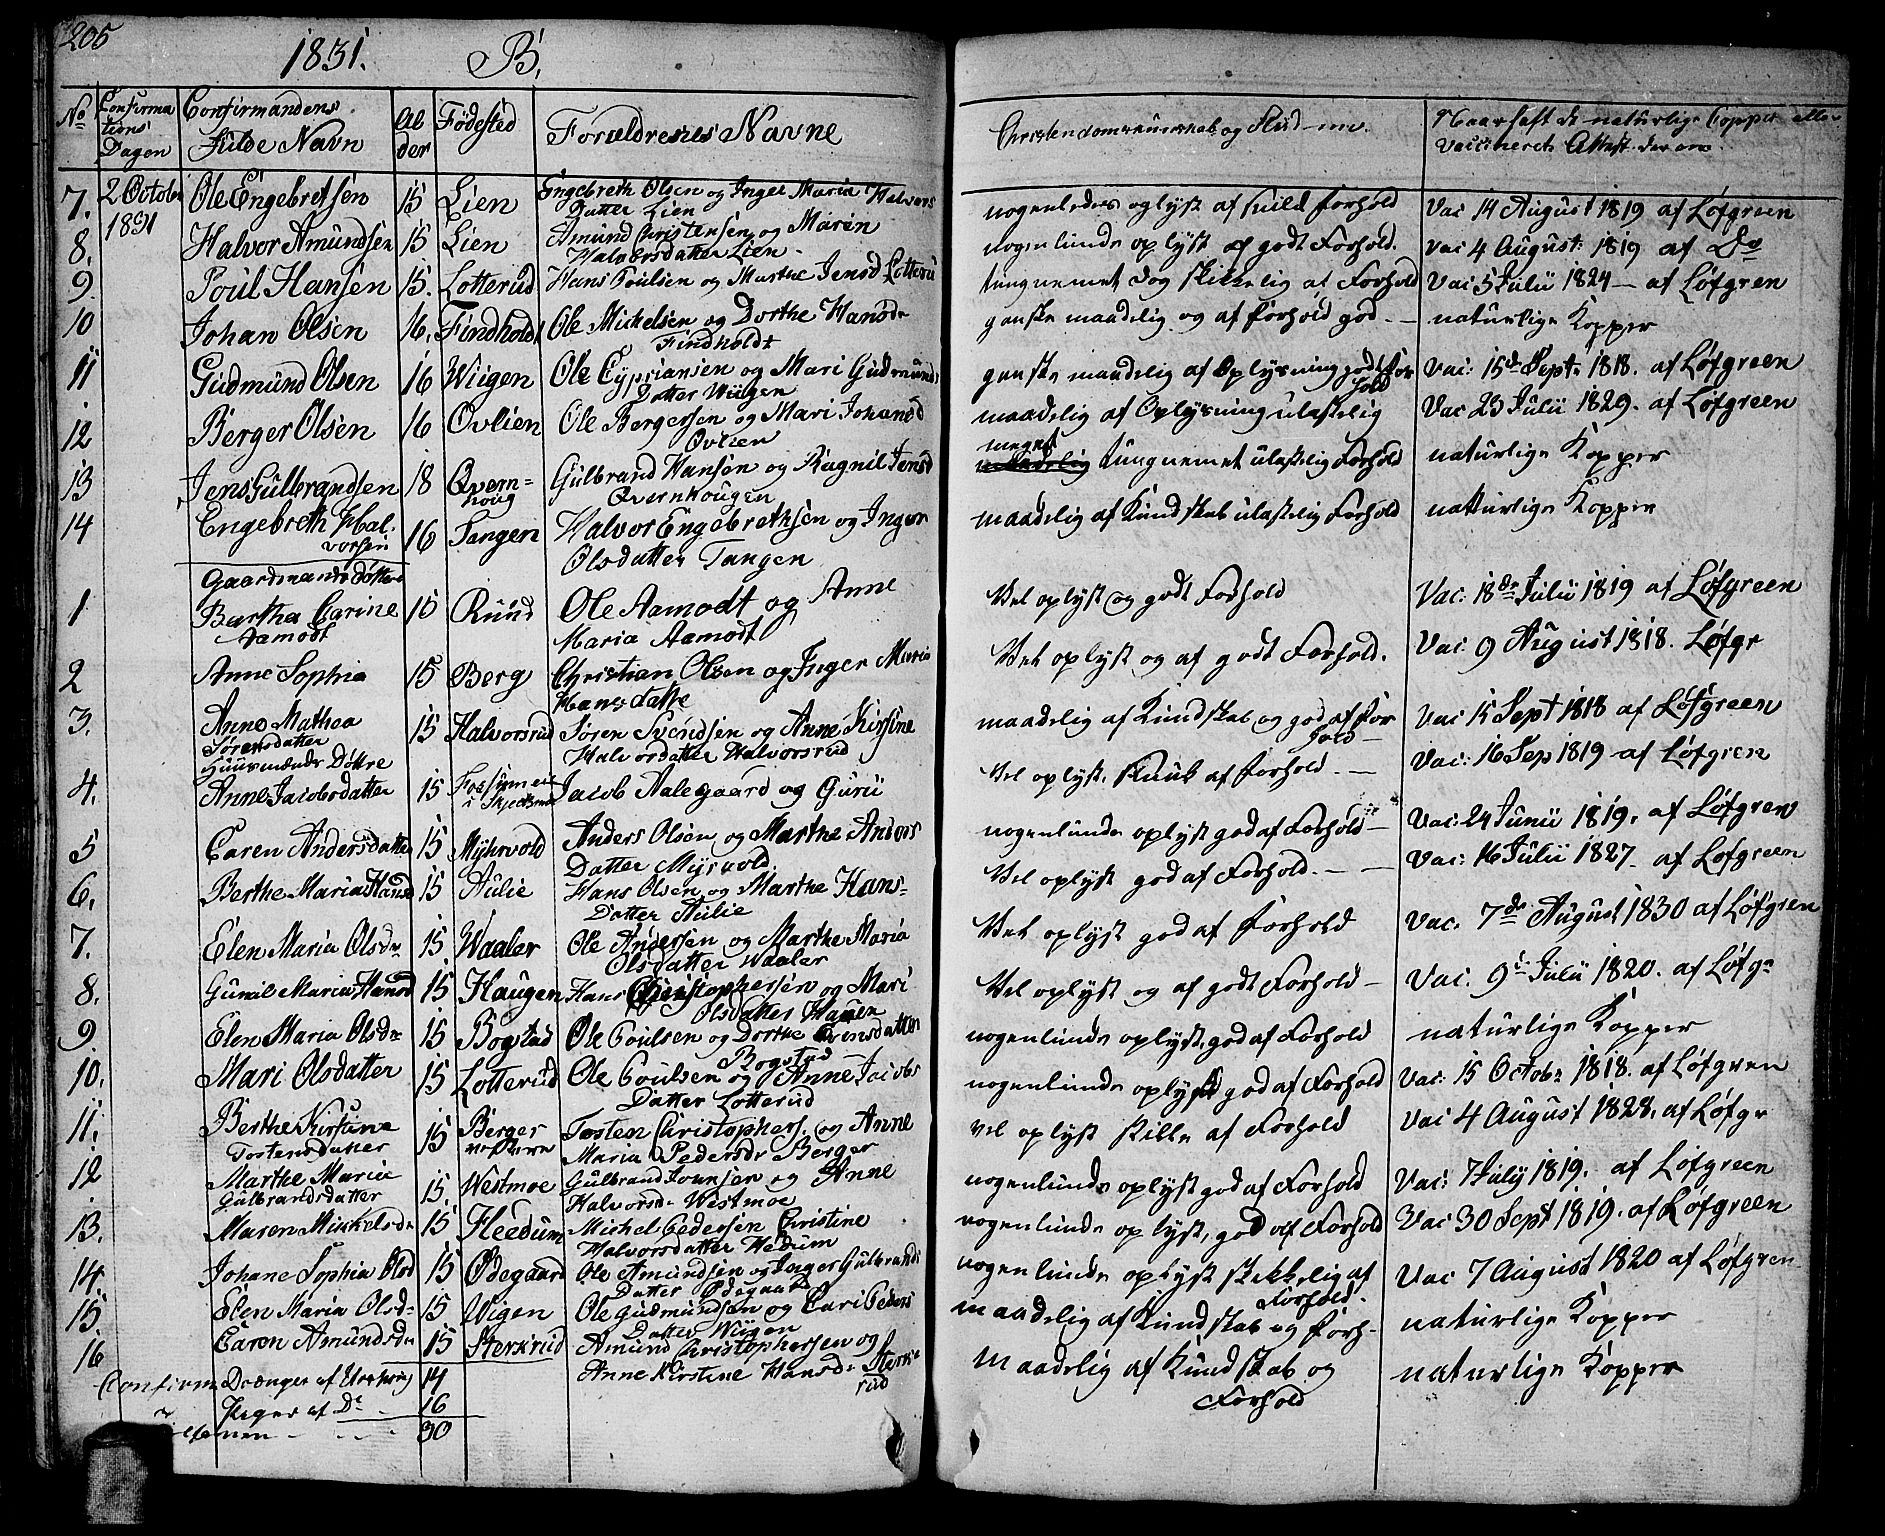 205
1831. B.
No Confirmations Dagen Confirmandens fulde Navn Alder Födested Forældrenes Navne Christendomskundskab og Flid m.m. Naar haft de naturlige Kopper eller Vaccineret Attest derom
7. 2 October 1831 Ole Engebretsen 15 Lien Engebreth Olsen og Inger Maria Halvors Datter Lien nogenledes oplyst af Forhold Vac 14 August 1819 af Løfgreen
8. Halvor Amundsen 15 Lien Amund Christensen og Maren Halvorsdatter Lien nogenlunde oplyst af godt Forhold. Vac 4 August: 1819 af Do
9. Poul Hansen 15. Lotterud Hans Poulsen og Marthe Jensd Lotterü tungnemet dog skikkelig af Forhold Vac 5 Julii 1824 – af Løfgren
10 Johan Olsen 16. Findholdt Ole Mickelsen og Dorthe Hansdr Findholdt ganske maadelig og af Forhold god – naturlige Kopper
11 Gudmund Olsen 16 Wiigen Ole Cypriansen og Mari Gudmunds Datter Wiigen ganske maadelig af Oplysning godt Forhold Vac: 15de Septr 1818. af Løfgreen
12 Berger Olsen 16 Ovlien Ole Bergersen og Mari Johansd Ovlien maadelig af Oplysning ulastelig Vac 23 Julii 1829. af Løfgreen
13 Jens Gulbrandsen 18 Qvernhoug Gulbrand Hansen og Ragnil Jensd Qvernhougen meget tungnemet ulastelig Forhold naturlige Kopper
14 Engebreth Halvorsen 16 Tangen Halvor Engebrethsen og Inger Olsdatter Tangen maadelig af Kundskab ulastelig Forhold naturlige Kopper
Gaardmands Døttre
1 Bertha Carine Aamodt 15 Rund Ole Aamodt og Anne Maria Aamodt Vel oplyst og godt Forhold Vac: 18de Julii 1819 af Løfgreen
2 Anne Sophia 15 Berg Christian Olsen og Inger Maria Hansdatte Vel oplyst og af godt Forhold. Vac: 9 August 1818. Løfgr
3. Anne Mathea Sørensdatter 15 Halvorsrud Søren Svendsen og Anne Kirstine Halvordatter Halvorsrud maadelig af Kundskab og god af Forhold – Vac 15 Sept 1818 af Løfgreen
Huusmænds Døttre
4. Anne Jacobsdatter 15 i Skjedsmo Jacob Aalegaard og Guru Vel oplyst, af Forhold. – Vac: 16 Sep 1819 – af Løfgren
5 Caren Andersdatter 15 Myhrvold Anders Olsen og Marthe Anders Datter Myrvold nogenlunde oplyst god af Forhold – Vac: 24 Junii 1819, af Løfgren
6. Berthe Maria Hansd 15 Aulie Hans Olsen og Marthe Hans- Datter Aulie Vel oplyst god af Forhold. – – Vac: 16 Julii 1827 – af Løfgreen
7. Elen Maria Olsdr 15. Waaler Ole Andersen og Marthe Maria Olsdatter Waaler Vel oplyst god af Forhold Vac. 7de August 1830 af Løfgren
8. Gunil Maria Hansd 15 Haugen Hans Christophersen og Mari Olsdatter Haugen Vel oplyst og af godt Forhold – Vac. 9de Julii 1820. af Løfgr
9. Elen Maria Olsdr 15 Bogstad Ole Poulsen og Dorthe Evensdatter Bogstad nogenlunde oplyst, god af Forhold naturlige Kopper
10. Mari Olsdatter 15 Lotterud Ole Poulsen og Anne Jacobs Datter Lotterud nogenlunde oplyst god af Forhold Vac: 15 Octobr 1818. af Løfgren
11. Berthe Kirstine Tostensdatter 15 Berger Tosten Christophers. og Anne Maria Pedersdr Berger vel oplyst stille af Forhold Vac 4 August 1828, af Løfgr
12 Marthe Maria Gulbrandsdatter 15. Westmoe Gulbrand Jonnsen og Anne Halvorsdr Westmoe nogenlunde oplyst god af Forhold Vac: 7 July 1819. af Løfgreen
13. Maren Mikkelsdr 15 Heedum Mickel Pedersen Christine Halvorsdatter Hedum nogenlunde oplyst, god af Forhold Vac 30 Sept 1819. af Løfgreen
14. Johane Sophia Olsd 15 Ødegaard Ole Amundsen og Inger Gulbrands Datter Ødegaard nogenlunde oplyst skikkelig af Forhold. Vac 7 August 1820 af Løfgren
15. Elen Maria Olsdr 15 Wigen Ole Gudmundsen og Cari Peders Datter Wiigen maadelig af Kundskab og Forh- naturlige Kopper
16 Caren Amundsdr 15 Sterkrud Amund Christophersen og Anne Kirstine Hansdr Sterkrud maadelig af Kundskab og Forhold naturlige Kopper
Confirm Drænger af 14
Piger af Do – 16
30